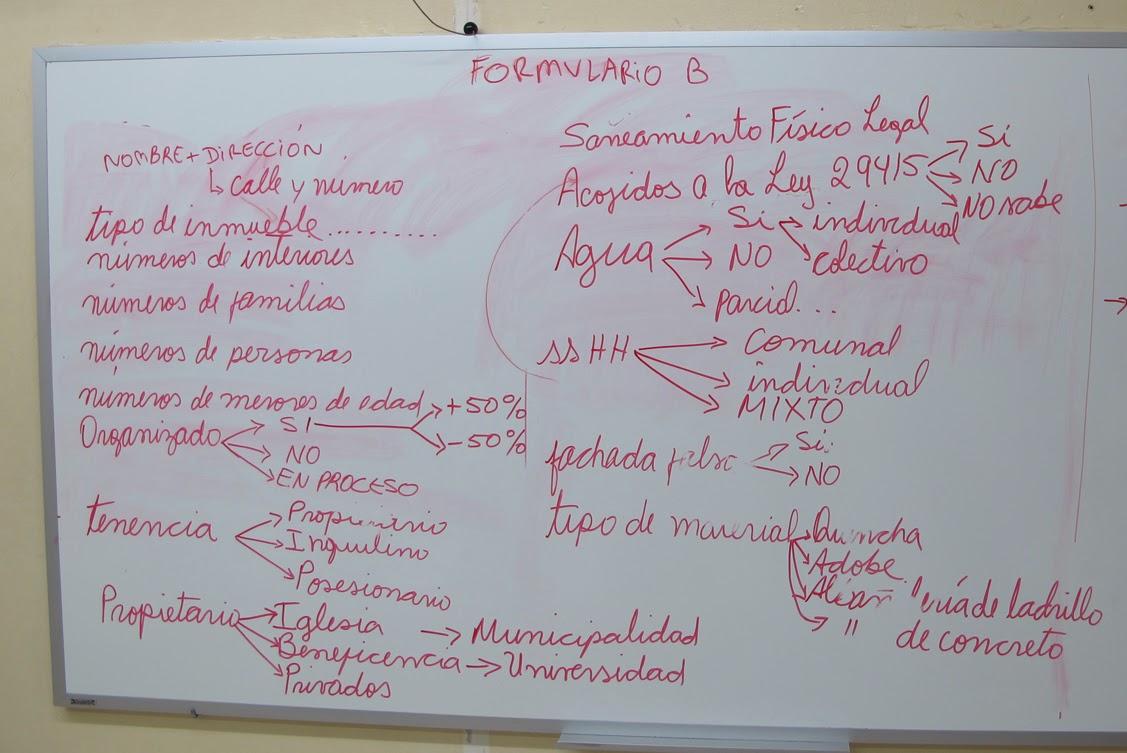 FORMULARIO B
NOMBRE + DIRECCIÓN
calle y número
tipo de inmueble..........
números de interiores
números de familias
números de personas
números de menores de edad
Organizado
SI
+50%
-50%
NO
EN PROCESO
tenencia
Propietario
Inquilino
Posesionario
Propietario
Iglesia → Municipalidad
Beneficencia → Universidad
Privados
Saneamiento Físico Legal
Acojidos a la Ley 29415
Si
NO
NO sabe
Agua
Si
individual
colectivo
NO
parcial...
ssHH
Comunal
individual
MIXTO
fachada falsa
Si
NO
tipo de material
Quincha
Adobe
de ladrillo
" de concreto